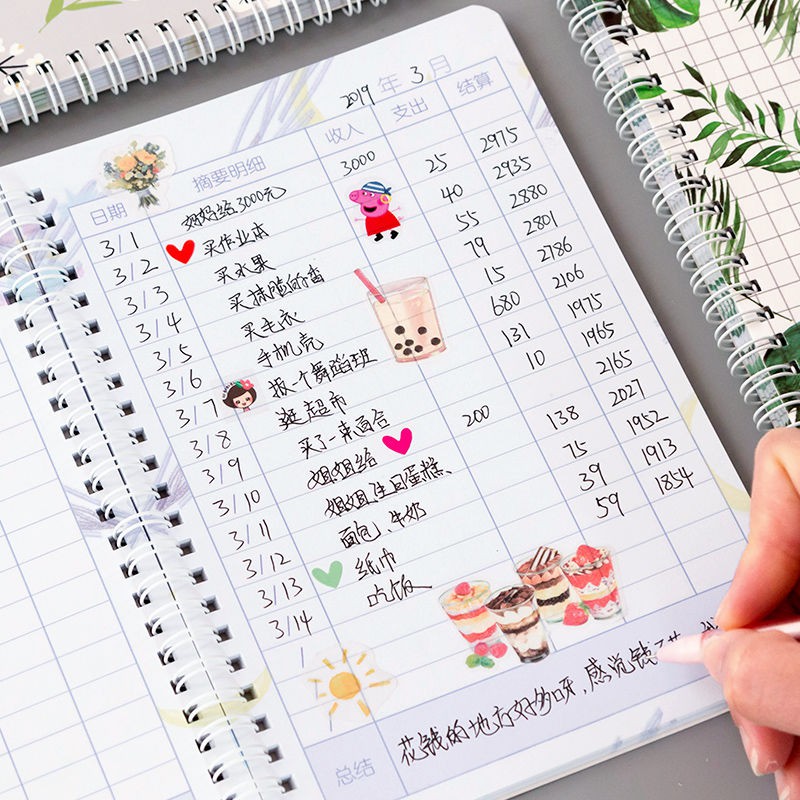 2019年3月
日期 摘要明细 收入 支出 结算
3/1 妈妈给3000元 3000
3/2 买作业本 25 2975
3/3 买水果 40 2935
3/4 买抹脸的香 55 2880
3/5 买毛衣 79 2801
3/6 手机壳 15 2786
3/7 报一个舞蹈班 680 2106
3/8 逛超市 131 1975
3/9 买了一束百合 10 1965
3/10 姐姐给 200 2165
3/11 姐姐生日蛋糕、 138 2027
3/12 面包、牛奶 75 1952
3/13 纸巾 39 1913
3/14 吃饭 59 1854
/
/
总结 花钱的地方好多呀,感觉钱